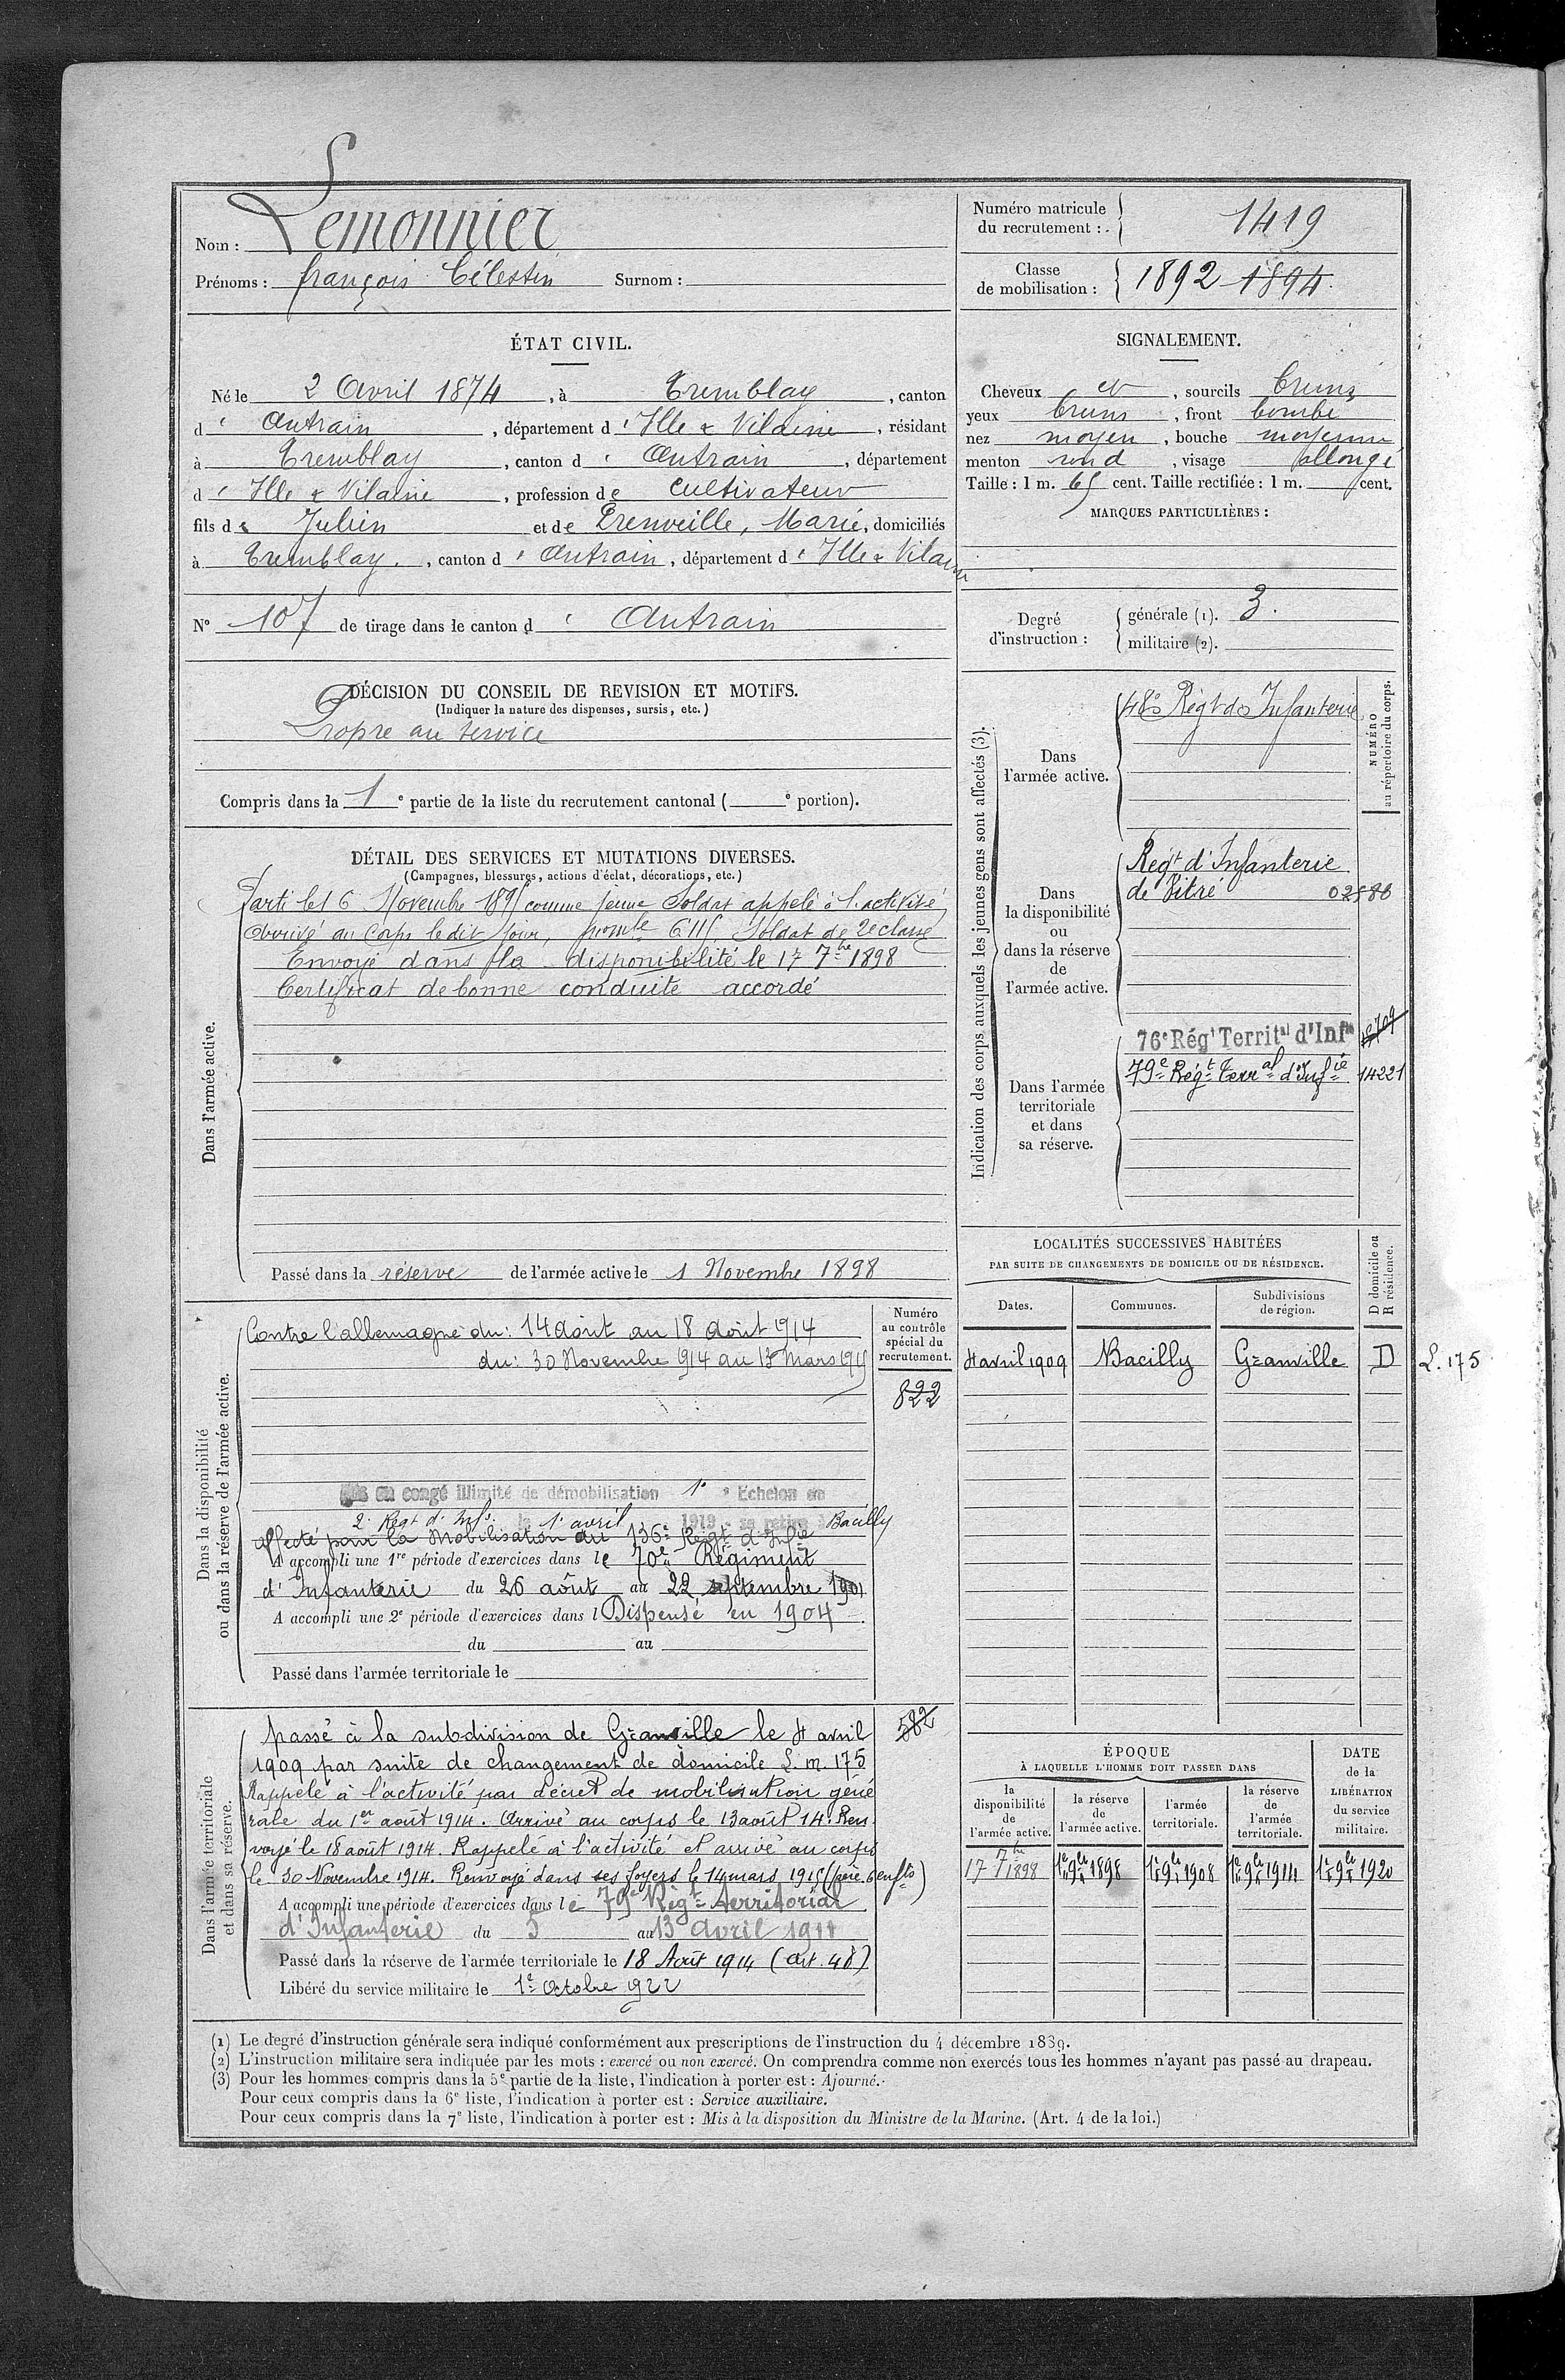 Nom : Lemonnier
Prénoms : françois Célestin Surnom :
Numéro matricule du recrutement : 1419
Classe de mobilisation : 1892 1894
ÉTAT CIVIL.
Né le 2 Avril 1874, à Tremblay, canton
d' Antrain, département d' Ille & Vilaine, résidant
à Tremblay, canton d' Antrain, département
d' Ille & Vilaine, profession de cultivateur
fils de Julien et de Prenveille, Marie, domiciliés
à Tremblay, canton d' Antrain, département d' Ille & Vilaine
N° 107 de tirage dans le canton d' Antrain
DÉCISION DU CONSEIL DE REVISION ET MOTIFS.
(Indiquer la nature des dispenses, sursis, etc.)
Propre au service
Compris dans la 1e partie de la liste du recrutement cantonal ( e portion).
SIGNALEMENT.
Cheveux et, sourcils bruns
yeux bruns, front bombé
nez moyen, bouche moyenne
menton rond, visage allongé
Taille : 1 m. 65 cent. Taille rectifiée : 1 m. cent.
MARQUES PARTICULIÈRES :
Degré d'instruction :
générale (1). 3.
militaire (2).
DÉTAIL DES SERVICES ET MUTATIONS DIVERSES.
(Campagnes, blessures, actions d'éclat, décorations, etc.)
Dans l'armée active.
Parti le 16 Novembre 1895 comme jeune Soldat appelé à l'activité
Arrivé au Corps le dit jour, 6115 Soldat de 2e classe
Envoyé dans la disponibilité le 17 7bre 1898
Certificat de bonne conduite accordé
Passé dans la réserve de l'armée active le 1 Novembre 1898
Indication des corps auxquels les jeunes gens sont affectés (3).
NUMÉRO au répertoire du corps.
Dans l'armée active.
48e Régt d'Infanterie
Dans la disponibilité ou dans la réserve de l'armée active.
Régt d'Infanterie
de Vitré 02586
Dans l'armée territoriale et dans sa réserve.
76e Régt Territal d'Infie
79e Régt Terral d'Infie 14221
LOCALITÉS SUCCESSIVES HABITÉES
PAR SUITE DE CHANGEMENTS DE DOMICILE OU DE RÉSIDENCE.
Dates. Communes. Subdivisions de région. D domicile ou R résidence.
4 avril 1909 Bacilly Granville D L. 175
Dans la disponibilité ou dans la réserve de l'armée active.
Numéro au contrôle spécial du recrutement.
822
Contre l'allemagne du : 14 août au 18 août 1914
du : 30 Novembre 914 au 13 Mars 1915
Mis en congé illimité de démobilisation 1e Echelon au
2e Régt d'Infie le 1er avril 1919 se retire à Bacilly
affecté pour la mobilisation au 136e Régt d'Infie
A accompli une 1re période d'exercices dans le 70e Régiment
d'Infanterie du 26 août au 22 septembre 1901
A accompli une 2e période d'exercices dans l Dispensé en 1904
du au
Passé dans l'armée territoriale le
Dans l'armée territoriale et dans sa réserve.
582
passé à la subdivision de Granville le 4 avril
1909 par suite de changement de domicile L. m. 175
Rappelé à l'activité par décret de mobilisation géné
rale du 1er août 1914. Arrivé au corps le 13 août 14. Ren
voyé le 18 août 1914. Rappelé à l'activité et arrivé au corps
le 30 Novembre 1914. Renvoyé dans ses foyers le 14 mars 1915 (père 6 enfts)
A accompli une période d'exercices dans le 79e Régt territorial
d'Infanterie du 5 au 13 avril 1911
Passé dans la réserve de l'armée territoriale le 18 Août 1914 (art. 48)
Libéré du service militaire le 1er Octobre 922
ÉPOQUE
À LAQUELLE L'HOMME DOIT PASSER DANS
la disponibilité de l'armée active. la réserve de l'armée active. l'armée territoriale. la réserve de l'armée territoriale. DATE de la LIBÉRATION du service militaire.
17 7bre 1898 1er 9bre 1898 1er 9bre 1908 1er 9bre 1914 1er 9bre 1920
(1) Le degré d'instruction générale sera indiqué conformément aux prescriptions de l'instruction du 4 décembre 1889.
(2) L'instruction militaire sera indiquée par les mots : exercé ou non exercé. On comprendra comme non exercés tous les hommes n'ayant pas passé au drapeau.
(3) Pour les hommes compris dans la 5e partie de la liste, l'indication à porter est : Ajourné.
Pour ceux compris dans la 6e liste, l'indication à porter est : Service auxiliaire.
Pour ceux compris dans la 7e liste, l'indication à porter est : Mis à la disposition du Ministre de la Marine. (Art. 4 de la loi.)